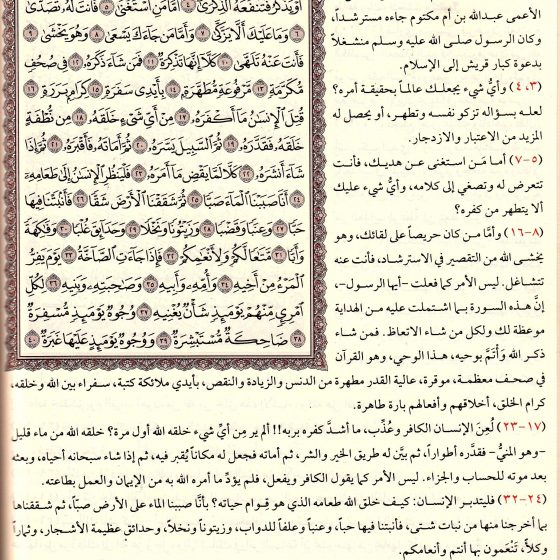 أَوْ يَذَّكَّرُ فَتَنفَعَهُ ٱلذِّكْرَىٰٓ ٤ أَمَّا مَنِ ٱسْتَغْنَىٰ ٥ فَأَنتَ لَهُۥ تَصَدَّىٰ
٦ وَمَا عَلَيْكَ أَلَّا يَزَّكَّىٰ ٧ وَأَمَّا مَن جَآءَكَ يَسْعَىٰ ٨ وَهُوَ يَخْشَىٰ ٩
فَأَنتَ عَنْهُ تَلَهَّىٰ ١٠ كَلَّآ إِنَّهَا تَذْكِرَةٌ ١١ فَمَن شَآءَ ذَكَرَهُۥ ١٢ فِى صُحُفٍ
مُّكَرَّمَةٍ ١٣ مَّرْفُوعَةٍ مُّطَهَّرَةٍۭ ١٤ بِأَيْدِى سَفَرَةٍ ١٥ كِرَامٍۭ بَرَرَةٍ ١٦
قُتِلَ ٱلْإِنسَٰنُ مَآ أَكْفَرَهُۥ ١٧ مِنْ أَىِّ شَىْءٍ خَلَقَهُۥ ١٨ مِن نُّطْفَةٍ
خَلَقَهُۥ فَقَدَّرَهُۥ ١٩ ثُمَّ ٱلسَّبِيلَ يَسَّرَهُۥ ٢٠ ثُمَّ أَمَاتَهُۥ فَأَقْبَرَهُۥ ٢١ ثُمَّ إِذَا
شَآءَ أَنشَرَهُۥ ٢٢ كَلَّا لَمَّا يَقْضِ مَآ أَمَرَهُۥ ٢٣ فَلْيَنظُرِ ٱلْإِنسَٰنُ إِلَىٰ طَعَامِهِۦٓ
٢٤ أَنَّا صَبَبْنَا ٱلْمَآءَ صَبًّا ٢٥ ثُمَّ شَقَقْنَا ٱلْأَرْضَ شَقًّا ٢٦ فَأَنۢبَتْنَا فِيهَا
حَبًّا ٢٧ وَعِنَبًا وَقَضْبًا ٢٨ وَزَيْتُونًا وَنَخْلًا ٢٩ وَحَدَآئِقَ غُلْبًا ٣٠ وَفَٰكِهَةً
وَأَبًّا ٣١ مَّتَٰعًا لَّكُمْ وَلِأَنْعَٰمِكُمْ ٣٢ فَإِذَا جَآءَتِ ٱلصَّآخَّةُ ٣٣ يَوْمَ يَفِرُّ
ٱلْمَرْءُ مِنْ أَخِيهِ ٣٤ وَأُمِّهِۦ وَأَبِيهِ ٣٥ وَصَٰحِبَتِهِۦ وَبَنِيهِ ٣٦ لِكُلِّ
ٱمْرِئٍ مِّنْهُمْ يَوْمَئِذٍ شَأْنٌ يُغْنِيهِ ٣٧ وُجُوهٌ يَوْمَئِذٍ مُّسْفِرَةٌ
٣٨ ضَاحِكَةٌ مُّسْتَبْشِرَةٌ ٣٩ وَوُجُوهٌ يَوْمَئِذٍ عَلَيْهَا غَبَرَةٌ ٤٠
الأعمى عبدالله بن أم مكتوم جاءه مسترشداً،
وكان الرسول صلى الله عليه وسلم منشغلاً
بدعوة كبار قريش إلى الإسلام.
(٣، ٤) وأيُّ شيء يجعلك عالماً بحقيقة أمره؟
لعله بسؤاله تزكو نفسه وتطهر، أو يحصل له
المزيد من الاعتبار والازدجار.
(٥-٧) أما مَن استغنى عن هديك، فأنت
تتعرض له وتصغي إلى كلامه، وأيُّ شيء عليك
ألا يتطهر من كفره؟
(٨-١٦) وأمَّا من كان حريصاً على لقائك، وهو
يخشى الله من التقصير في الاسترشاد، فأنت عنه
تتشاغل. ليس الأمر كما فعلت -أيها الرسول-،
إنَّ هذه السورة بما اشتملت عليه من الهداية
موعظة لك ولكل من شاء الاتعاظ. فمن شاء
ذكر الله وَأْتَمَّ بوحيه، هذا الوحي، وهو القرآن
في صحف معظمة، موقرة، عالية القدر مطهرة من الدنس والزيادة والنقص، بأيدي ملائكة كتبة، سفراء بين الله وخلقه،
كرام الخلق، أخلاقهم وأفعالهم بارة طاهرة.
(١٧-٢٣) لُعِنَ الإنسان الكافر وعُذِّب، ما أشدَّ كفره بربه!! ألم ير مِن أيِّ شيء خلقه الله أول مرة؟ خلقه الله من ماء قليل
-وهو المنيُّ- فقدَّره أطواراً، ثم بيَّن له طريق الخير والشر، ثم أماته فجعل له مكاناً يُقبر فيه، ثم إذا شاء سبحانه أحياه، وبعثه
بعد موته للحساب والجزاء. ليس الأمر كما يقول الكافر ويفعل، فلم يؤدِّ ما أمره الله به من الإيمان والعمل بطاعته.
(٢٤-٣٢) فليتدبر الإنسان: كيف خلق الله طعامه الذي هو قِوام حياته؟ بأنَّا صببنا الماء على الأرض صبّاً، ثم شققناها
بما أخرجنا منها من نبات شتى، فأنبتنا فيها حباً، وعنباً وعلفاً للدواب، وزيتوناً ونخلاً، وحدائق عظيمة الأشجار، وثماراً
وكلأ، تَنْعَمون بها أنتم وأنعامكم.